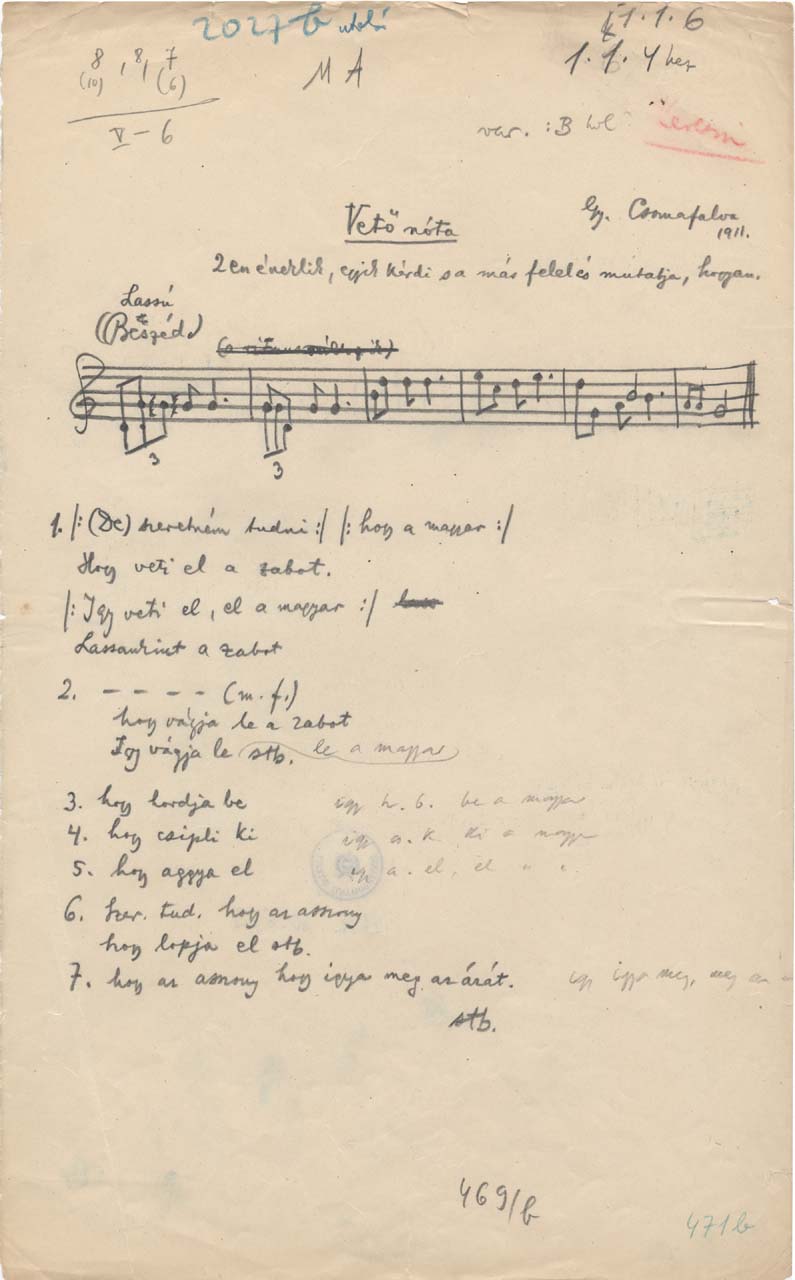 2027 b utolsó
8 , 8, 7
(10) (6)
V – 6
M A
1.1.6
1.1.4 bez
var. : B
Gy. Csomafalva
1911.
Vető nóta
2en éneklik, egyik kérdi s a más felel és mutatja, hogyan.
Lassú
(Beszéd.)
3
3
1. /: (De) szeretném tudni :/ /: hogy a magyar :/
Hogy veti el a zabot.
/: Igy veti el, el a magyar :/
Lassankint a zabot
2. – – – – (m. f.)
hogy vágja le a zabot
Igy vágja le stb. le a magyar
3. hogy hordja be igy h. b. be a magyar
4. hogy csipli ki igy cs. k. ki a magyar
5. hogy aggya el igy a. el, el " "
6. Szer. tud. hogy az asszony
hogy lopja el stb.
7. hogy az asszony hogy igya meg az árát. igy igya meg, meg az
stb.
469/b
471b